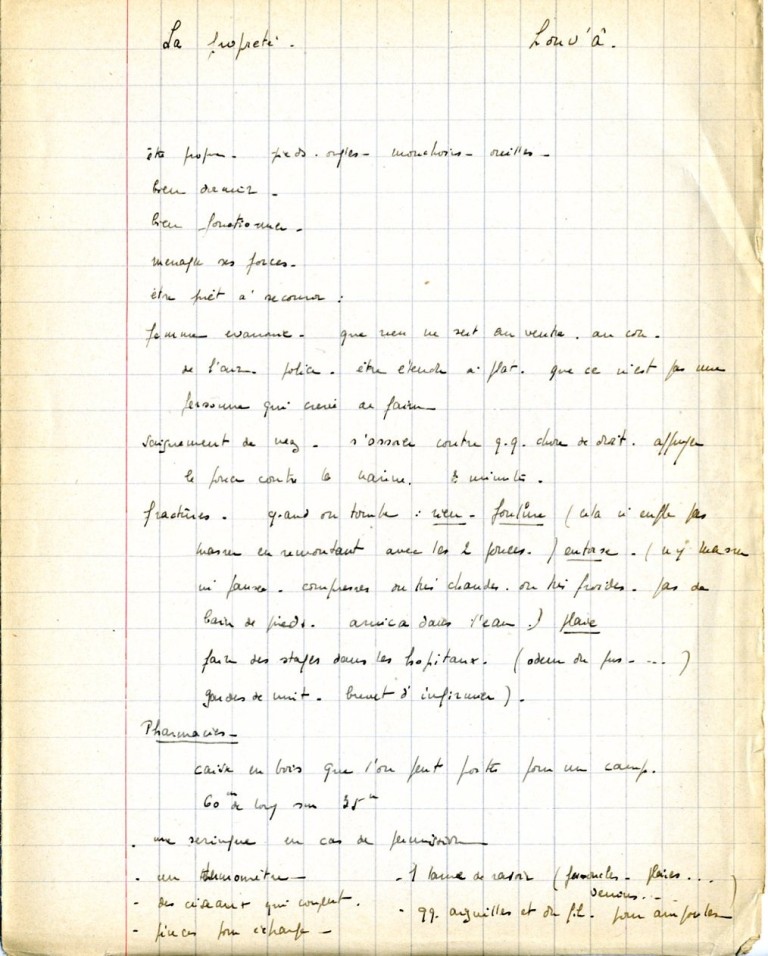 La propreté. Louv'a.
être propre. pieds. ongles. mouchoirs. oreilles.
bien dormir.
bien fonctionner.
ménager ses forces.
être prêt à secourir :
femme évanouie. que rien ne soit au ventre. au cou.
de l'air. police. être étendu à plat. que ce n'est pas une
personne qui crève de faim
saignement de nez. s'asseoir contre q.q. chose de droit. appuyer
le pouce contre la narine. minutes.
fractures. quand on tombe : rien. foulure (cela n'enfle pas
masser en remontant avec les 2 pouces.) entorse. (n'y masser
ni panser. compresses ou très chaudes. ou très froides. pas de
bain de pieds. arnica dans l'eau.) plaie
faire des stages dans les hopitaux. (odeur du pus. ...)
gardes de nuit. brevet d'infirmier).
Pharmacies.
caisse en bois que l'on peut porter pour un camp.
60 de long sur 35
. une seringue en cas de permission
. un thermomètre - 1 lame de rasoir (furoncles. plaies...)
venins...
- des ciseaux qui coupent. - qq. aiguilles et du fil. pour ampoules
- pinces pour écharge